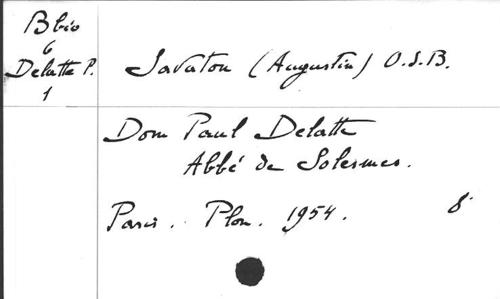 B bio
6
Delatte P.
1
Savaton (Augustin) O.S.B.
Dom Paul Delatte
Abbé de Solesmes.
Paris. Plon. 1954. 8°